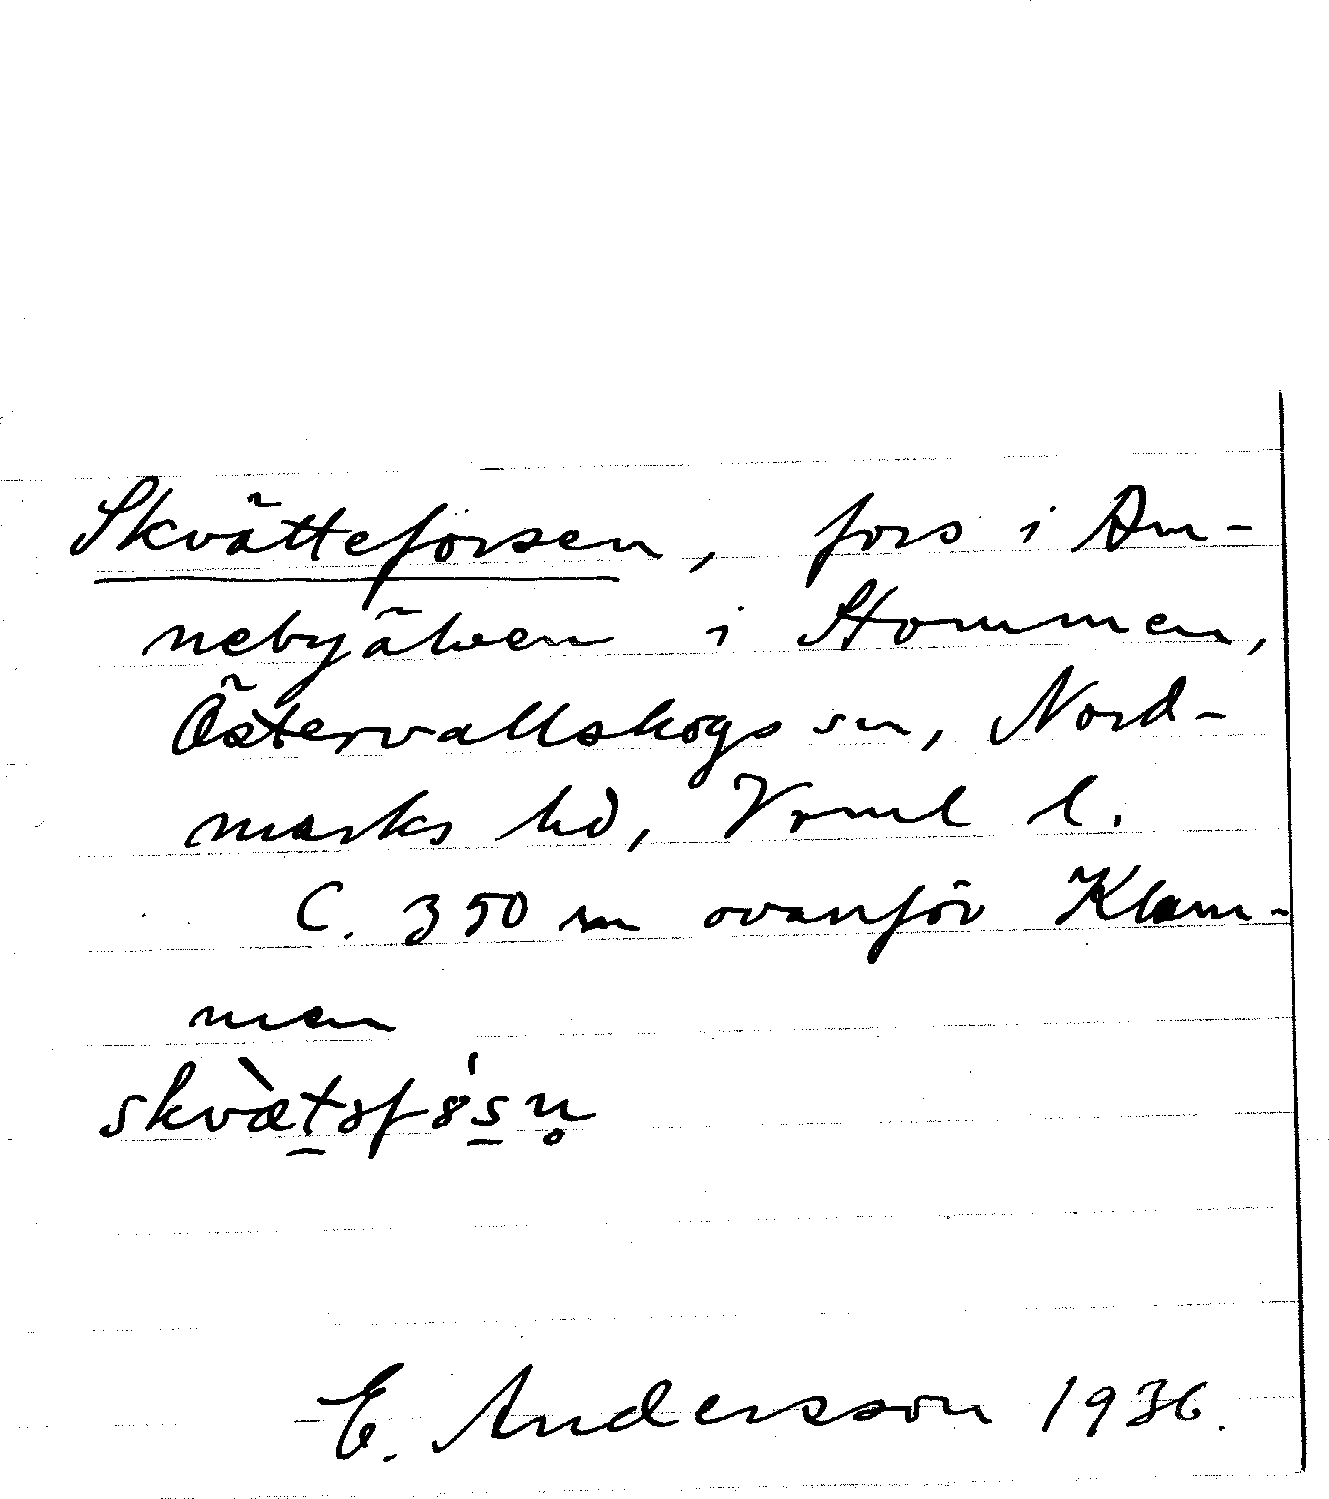 Skvätteforsen, fors i An-
nebyälven i Hommen,
Östervallskogs sn, Nord-
marks hd, Vrml l.
C. 350 m ovanför Klam-
men
E. Andersson 1936.